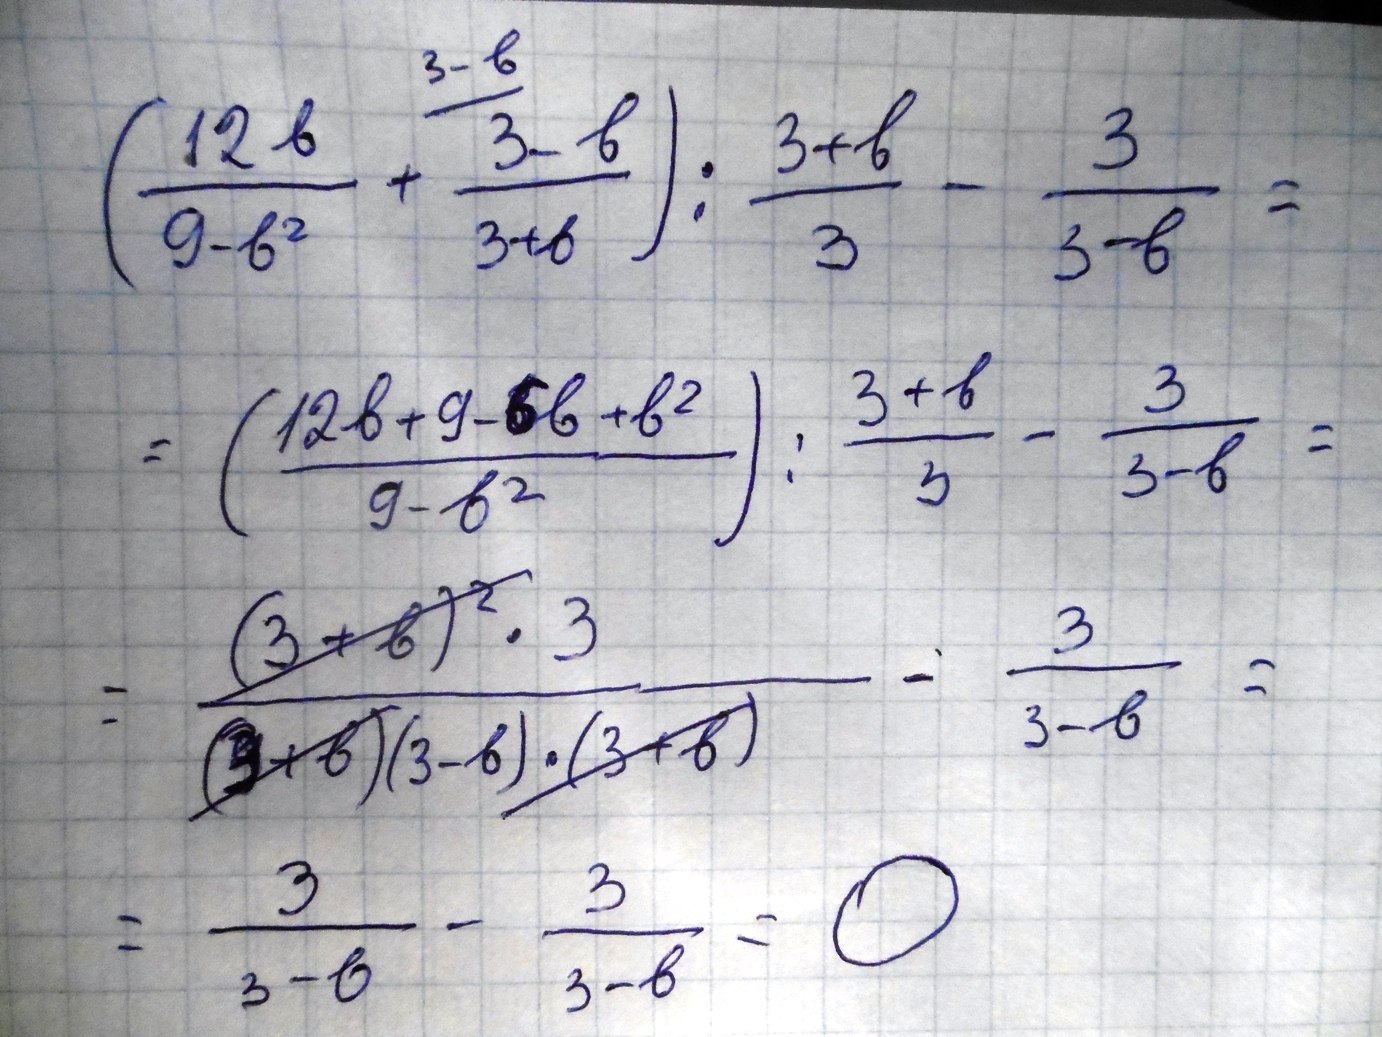 (12b/(9-b²) + (3-b)/(3+b) [3-b]) : (3+b)/3 - 3/(3-b) =
= ((12b+9-6b+b²)/(9-b²)) : (3+b)/3 - 3/(3-b) =
= ((3+b)²·3)/((3+b)(3-b)·(3+b)) - 3/(3-b) =
= 3/(3-b) - 3/(3-b) = 0